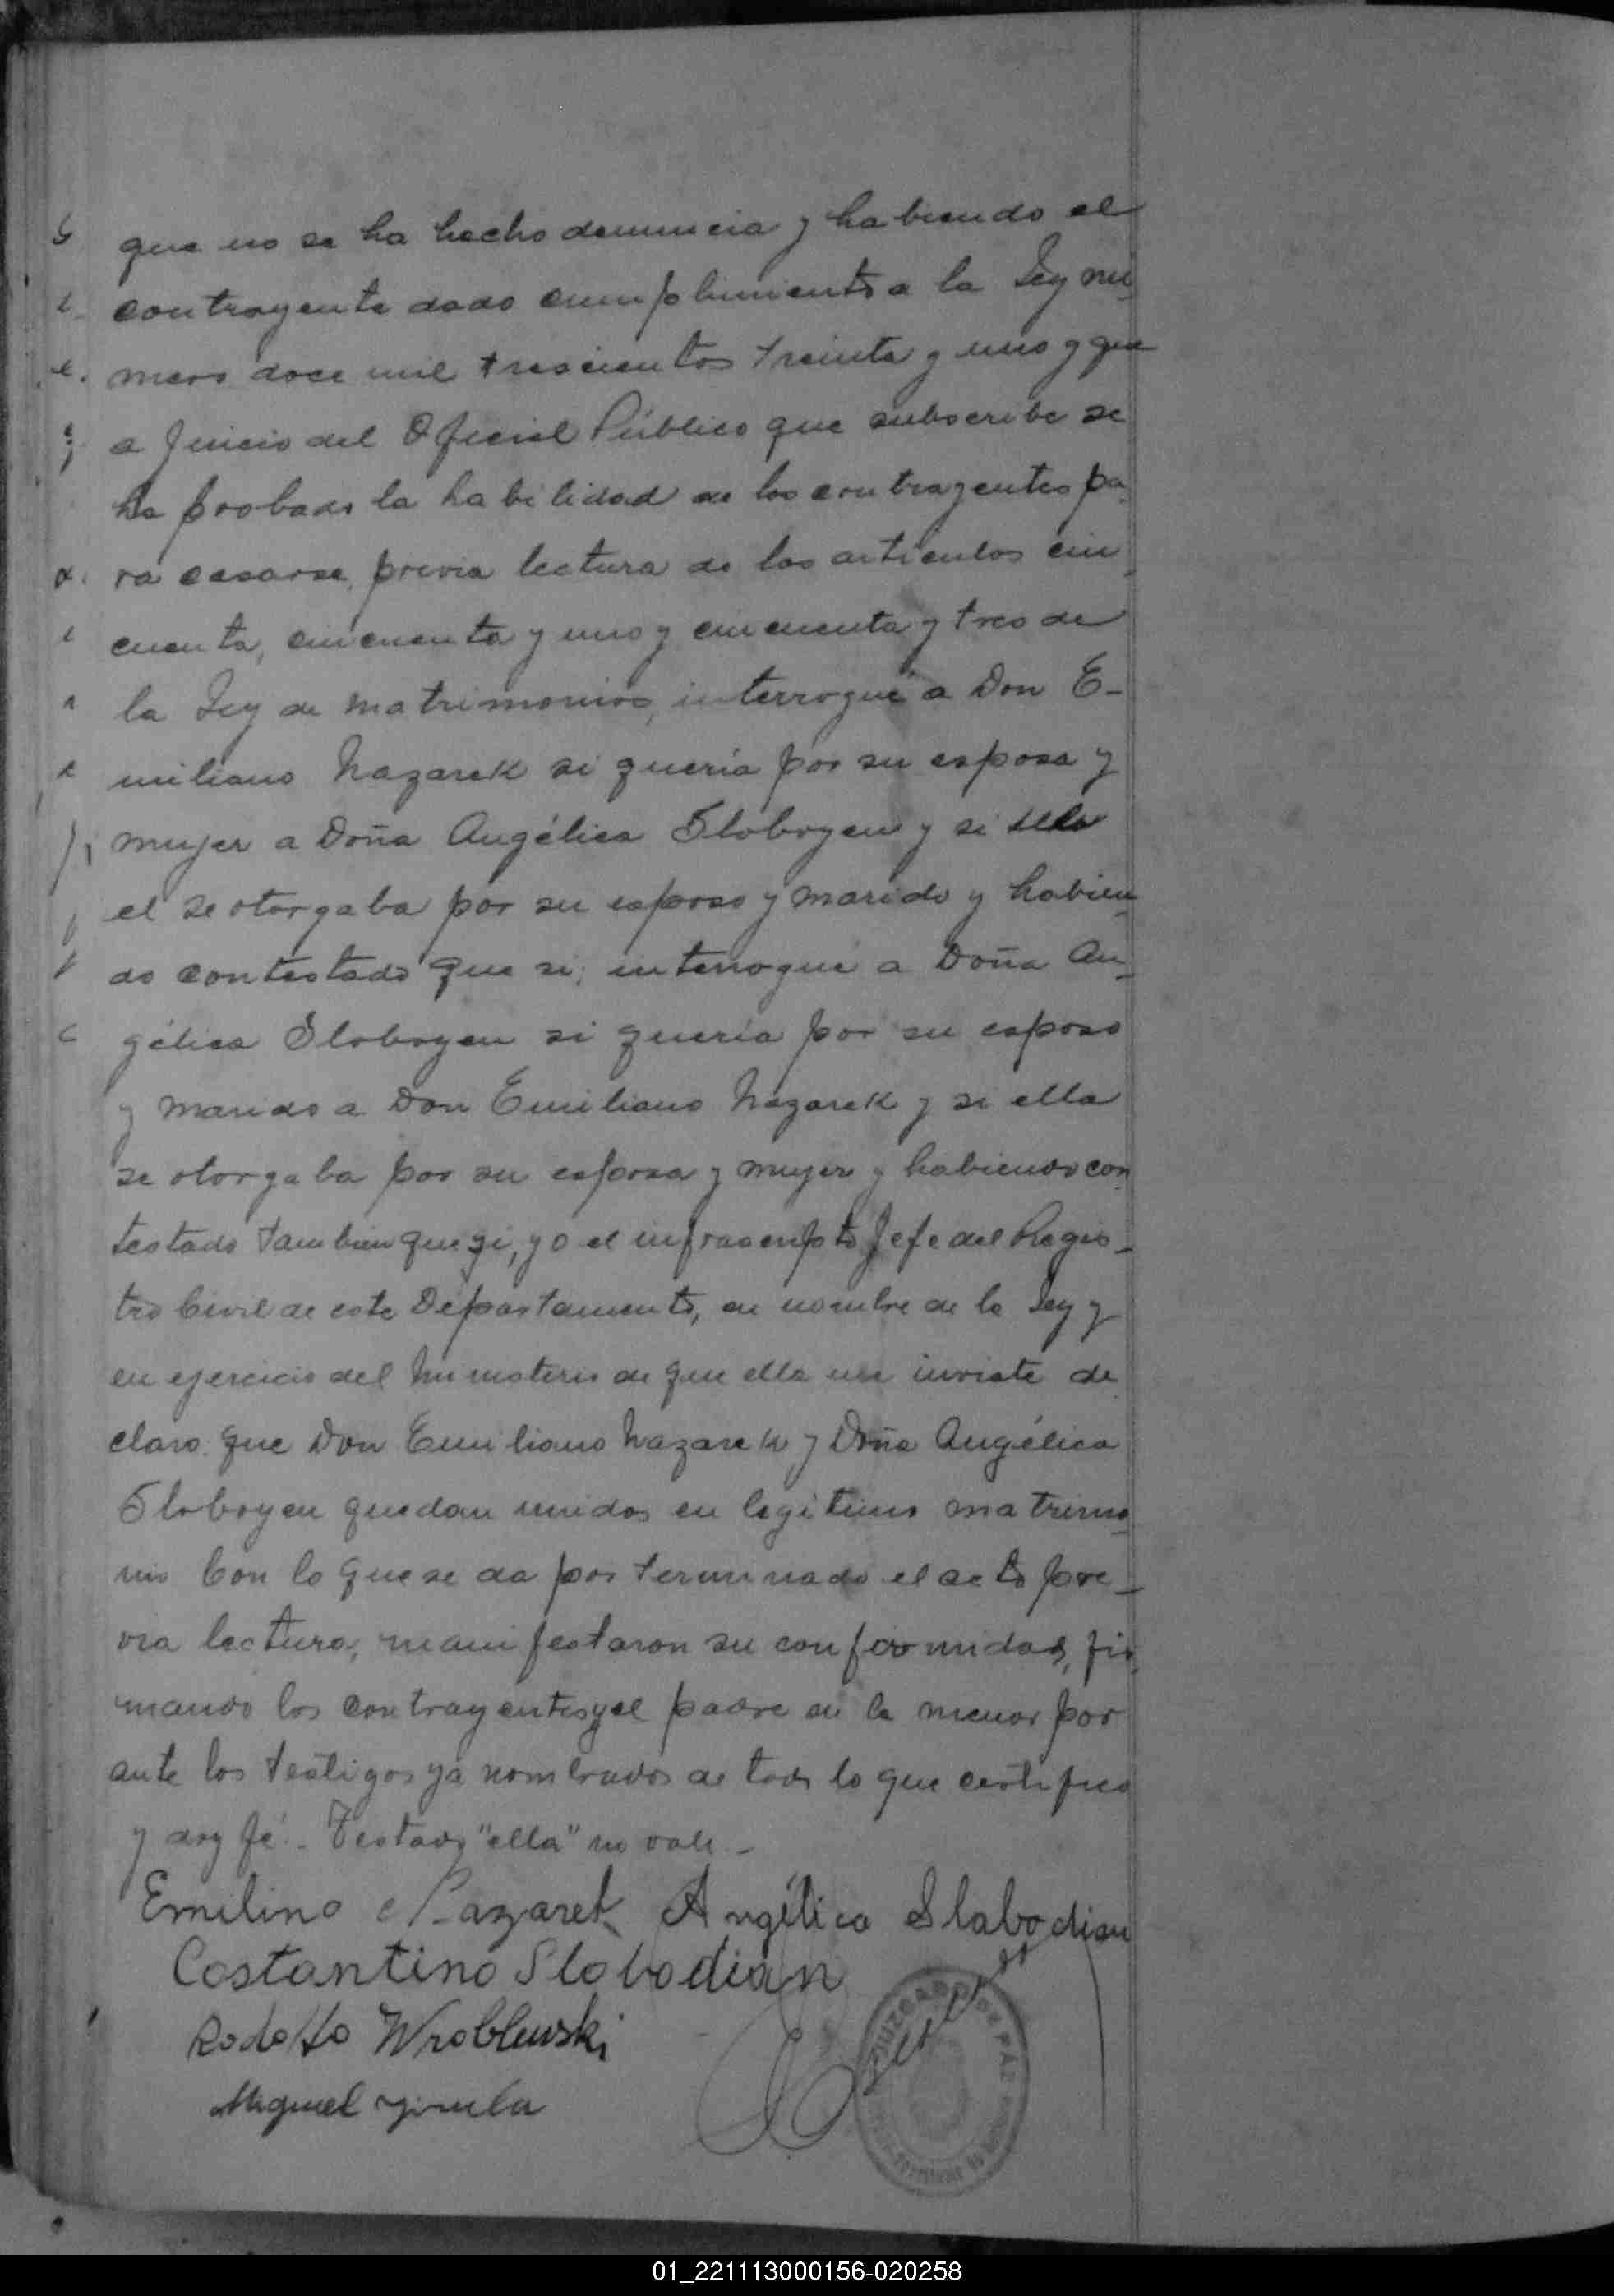 que no se ha hecho denuncia y habiendo el
contrayente dado cumplimiento a la Ley nú
mero doce mil trescientos treinta y uno y que
a juicio del Oficial Público que subscribe se
ha probado la habilidad de los contrayentes pa
ra casarse, previa lectura de los artículos cin
cuenta, cincuenta y uno y cincuenta y tres de
la Ley de matrimonios, interrogué a Don E-
miliano Nazarek si quería por su esposa y
mujer a Doña Angélica Sloboyen y si ella
el se otorgaba por su esposo y marido y habien
do contestado que si; interrogué a Doña An
gélica Sloboyen si quería por su esposo
y marido a Don Emiliano Nazarek y si ella
se otorgaba por su esposa y mujer y habiendo con
testado tambien que si, yo el infrascripto Jefe del Regis-
tro Civil de este Departamento, en nombre de la Ley y
en ejercicio del Ministerio de que ella me inviste de
claro: que Don Emiliano Nazarek y Doña Angélica
Sloboyen quedan unidos en legitimo matrimo
nio Con lo que se da por terminado el acto pre-
via lectura, manifestaron su conformidad, fir
mando los contrayentes y el padre de la menor por
ante los testigos ya nombrados de todo lo que certifico
y doy fé.- Testado "ella" no vale.-
Emilino Nazarek Angélica Slabodian
Costantino Slobodian
Rodolfo Wroblewski
Miguel
JUZGADO DE PAZ
01_221113000156-020258